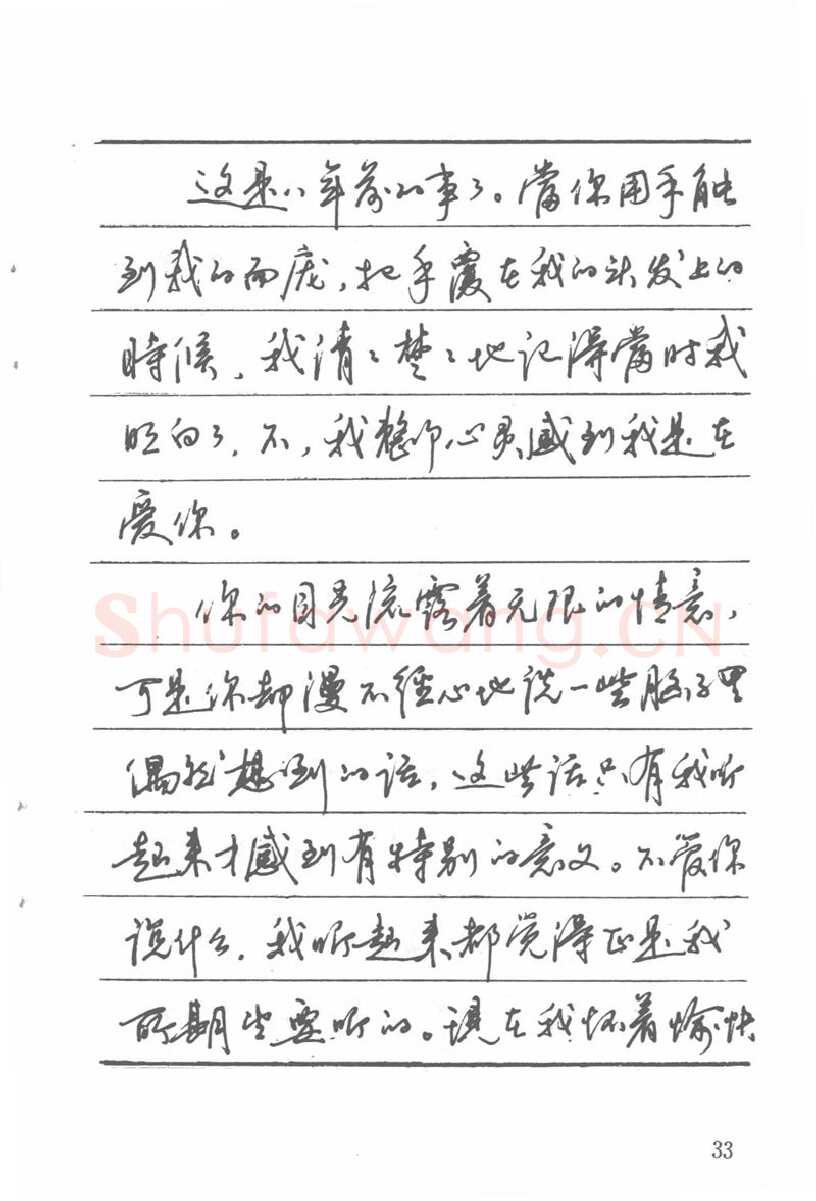 这是八年前的事了。當你用手触
到我的面庞，把手覆在我的头发上的
時候，我清々楚々地记得當时我
明白了，不，我整个心灵感到我是在
爱你。
你的目光流露着无限的情意，
可是你却漫不經心地说一些脑子里
偶然想到的话，这些话只有我听
起来才感到有特别的意义。不管你
说什么，我听起来都觉得正是我
所期望要听的。现在我怀着愉快
ShufaWang.CN
33